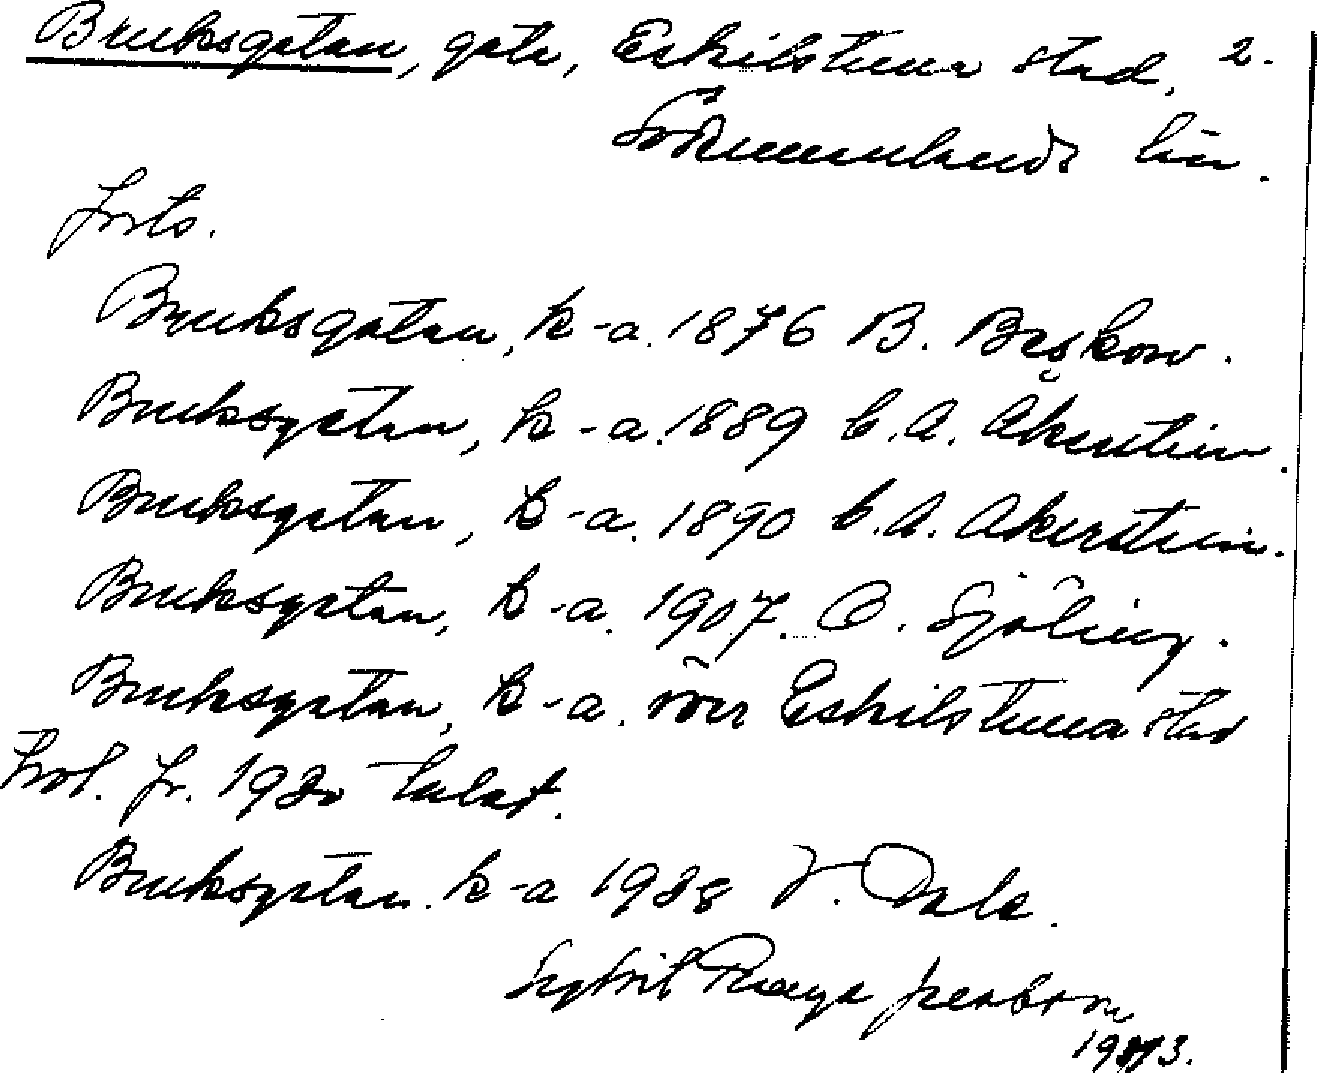 Bruksgatan, gata, Eskilstuna stad, 2.
Södermanlands län.
forts.
Bruksgatan, k-a. 1876 B. Beskow.
Bruksgatan, k-a. 1889 C.A. Åkerstein.
Bruksgatan, k-a. 1890 C.A. Åkerstein.
Bruksgatan, k-a. 1907. C. Sjöling.
Bruksgatan, k-a. över Eskilstuna stad
fr. 1920 talet.
Bruksgatan. k-a 1928 V. Dale.
1973.